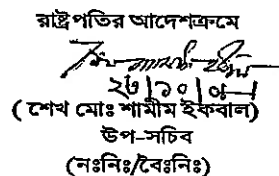 রাষ্ট্রপতির আদেশক্রমে
( শেখ মোঃ শামীম ইকবাল)
উপ-সচিব
(নঃনিঃ/বৈঃনিঃ)